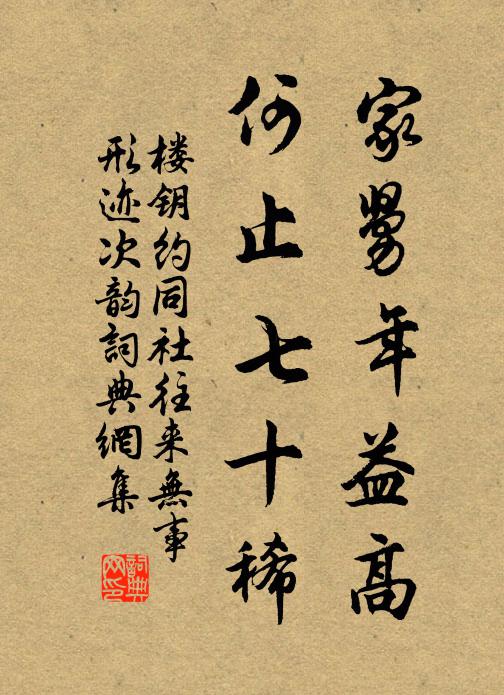 家舅年益高
何止七十稀
楼钥约同社往来無事
形迹次韵詞典網集
詞典网印